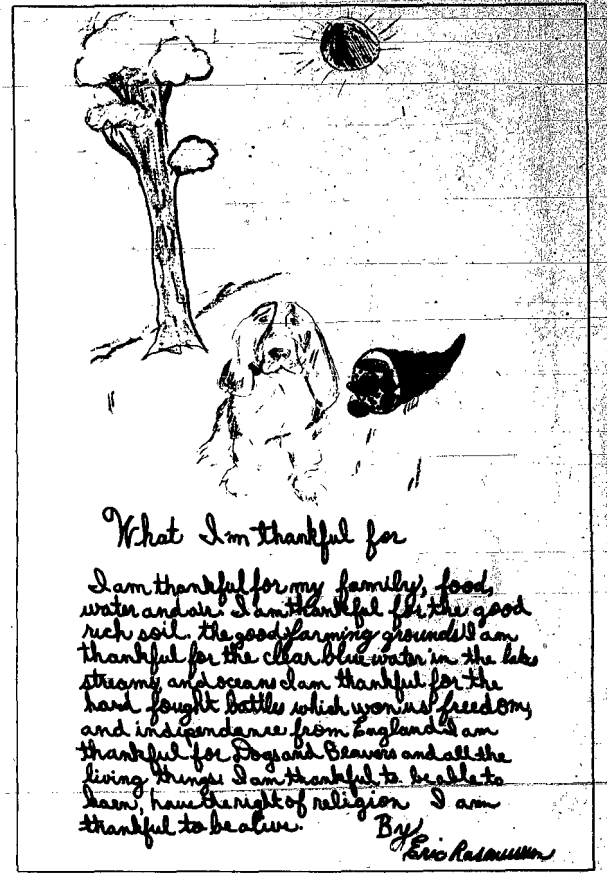 What I'm thankful for
I am thankful for my family, food,
water and air. I am thankful for the good
rich soil. the good farming grounds I am
thankful for the clear blue water in the lake
streams and oceans I am thankful for the
hard fought battles which won us freedom,
and indipendance from England I am
thankful for Dogs and Beavers and all the
living things I am thankful to be able to
laen, have the right of religion I am
thankful to be alive. By
Eric Rasmussen